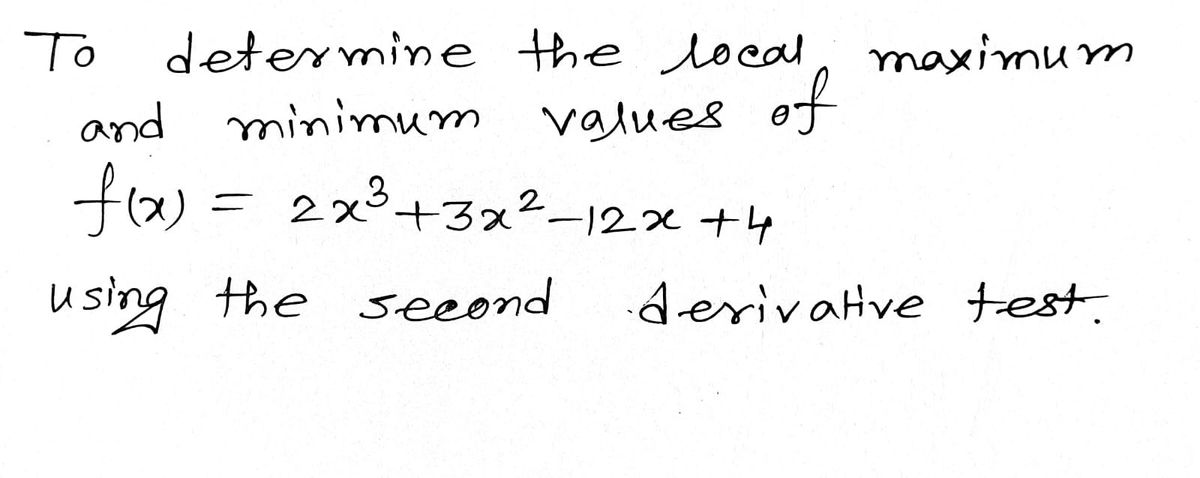 To determine the local maximum
and minimum values of
f(x) = 2x³+3x²-12x+4
using the second derivative test.